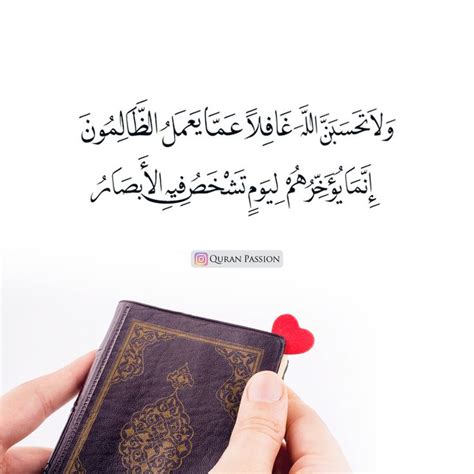 وَلَا تَحْسَبَنَّ اللَّهَ غَافِلًا عَمَّا يَعْمَلُ الظَّالِمُونَ
إِنَّمَا يُؤَخِّرُهُمْ لِيَوْمٍ تَشْخَصُ فِيهِ الْأَبْصَارُ
QURAN PASSION